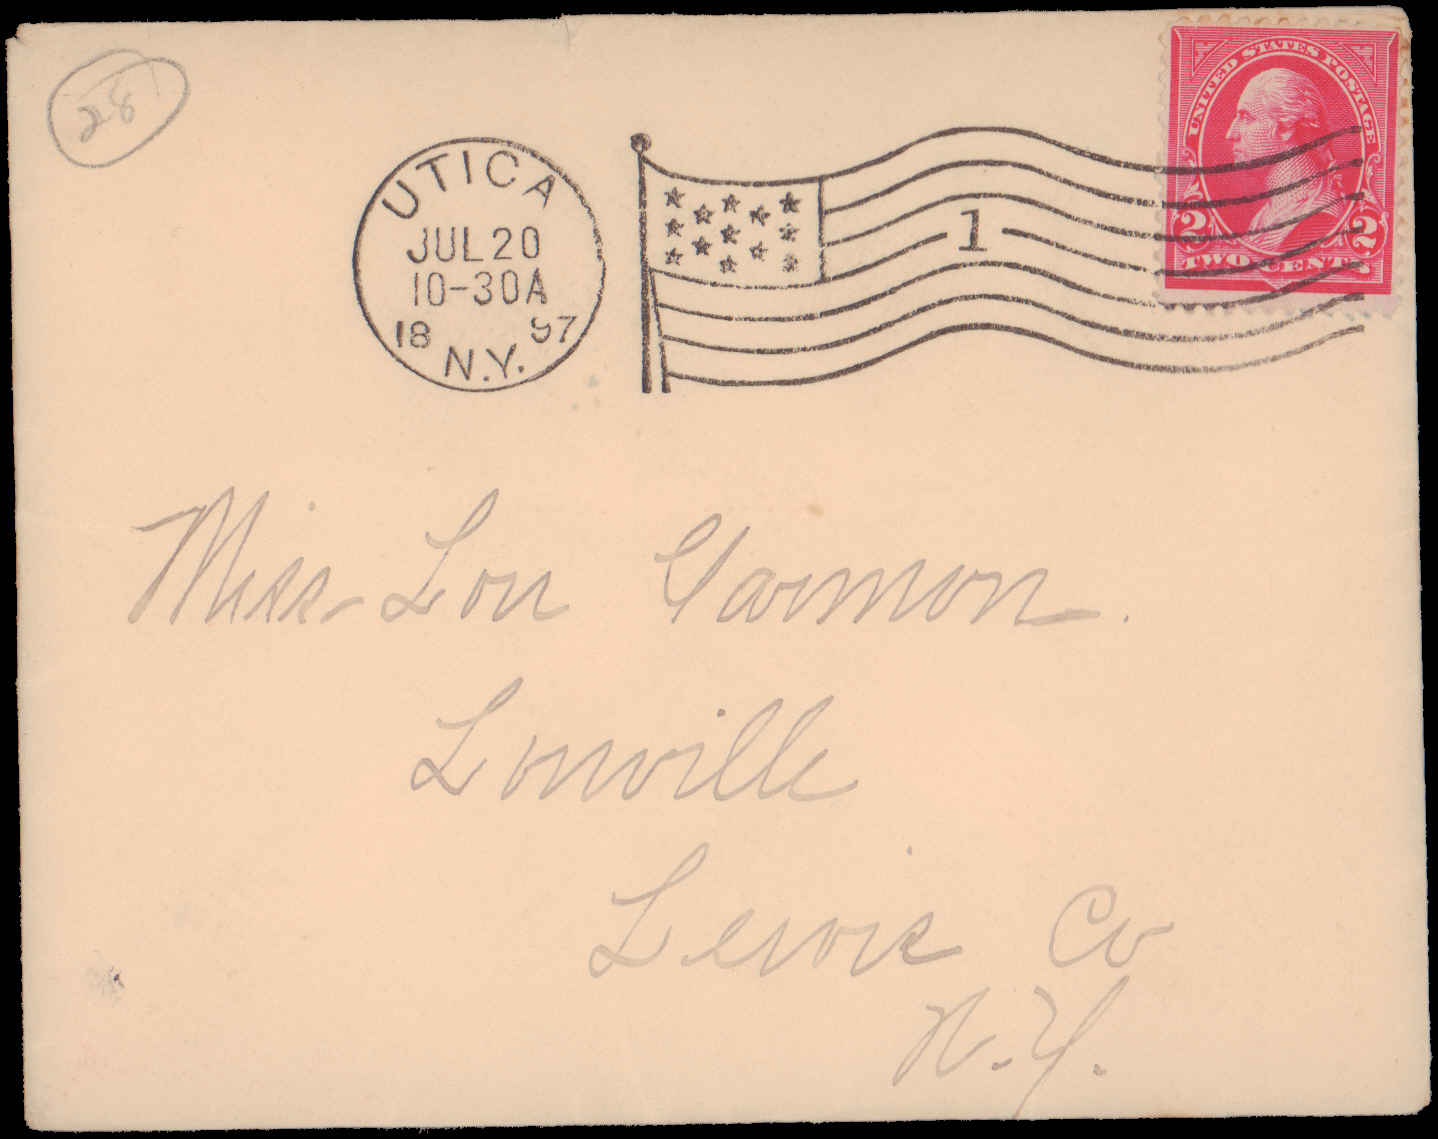 28
UNITED STATES POSTAGE
2 2
TWO CENTS
UTICA
JUL 20
10-30A
18 97
N.Y.
1
Miss Lou Garmon.
Lowville
Lewis Co
N.Y.